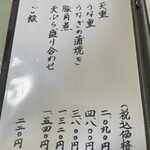 天重
うな重
うなぎの蒲焼き
豚角煮
天ぷら盛り合わせ
ご飯
(税込価格)
二、〇九〇円
四、八〇〇円
三、八〇〇円
一、五四〇円
二二〇円